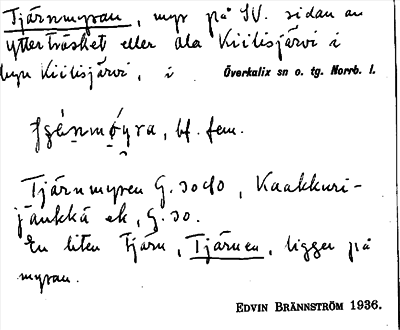 Tjärnmyran, myr på SV. sidan av
ytterträsket eller Ala Kiilisjärvi i
byn Kiilisjärvi, i Överkalix sn o. tg. Norrb. l.
bf. fem.
Tjärnmyren G. 30 d0, Kaakkuri-
jänkkä ek, G. 30.
En liten tjärn, Tjärnen, ligger på
myran.
EDVIN BRÄNNSTRÖM 1936.